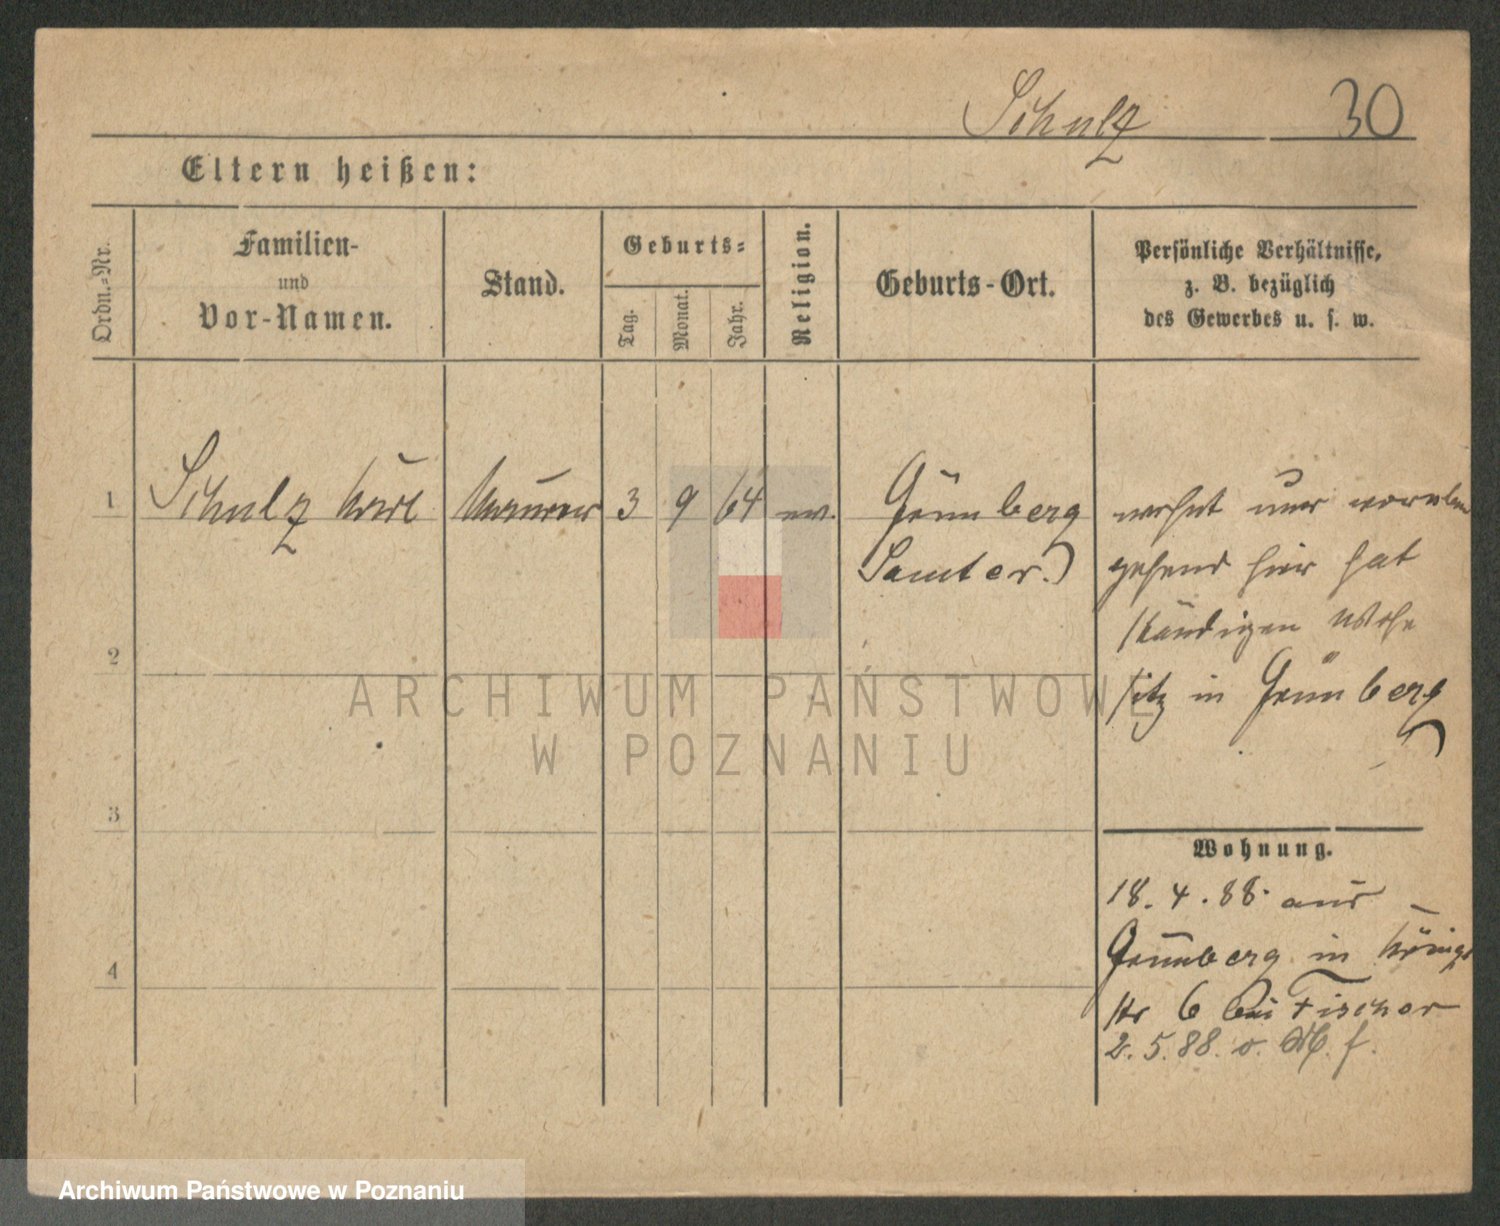 Schulz 30
Eltern heißen:
Ordn.-Nr.
Familien-
und
Vor-Namen.
Stand.
Geburts-
Tag.
Monat.
Jahr.
Religion.
Geburts-Ort.
Persönliche Verhältnisse,
z. B. bezüglich
des Gewerbes u. s. w.
1 Schulz Karl Maurer 3 9 64 ev. Grünberg
Samter.)
wohnt nur vorüber
gehend hier hat
ständigen Wohn
sitz in Grünberg
2
3
4
Wohnung.
18. 4. 88. aus
Grünberg in Königs
str 6 bei Fischer
2. 5. 88. o. M. f.
ARCHIWUM PAŃSTWOWE
W POZNANIU
Archiwum Państwowe w Poznaniu